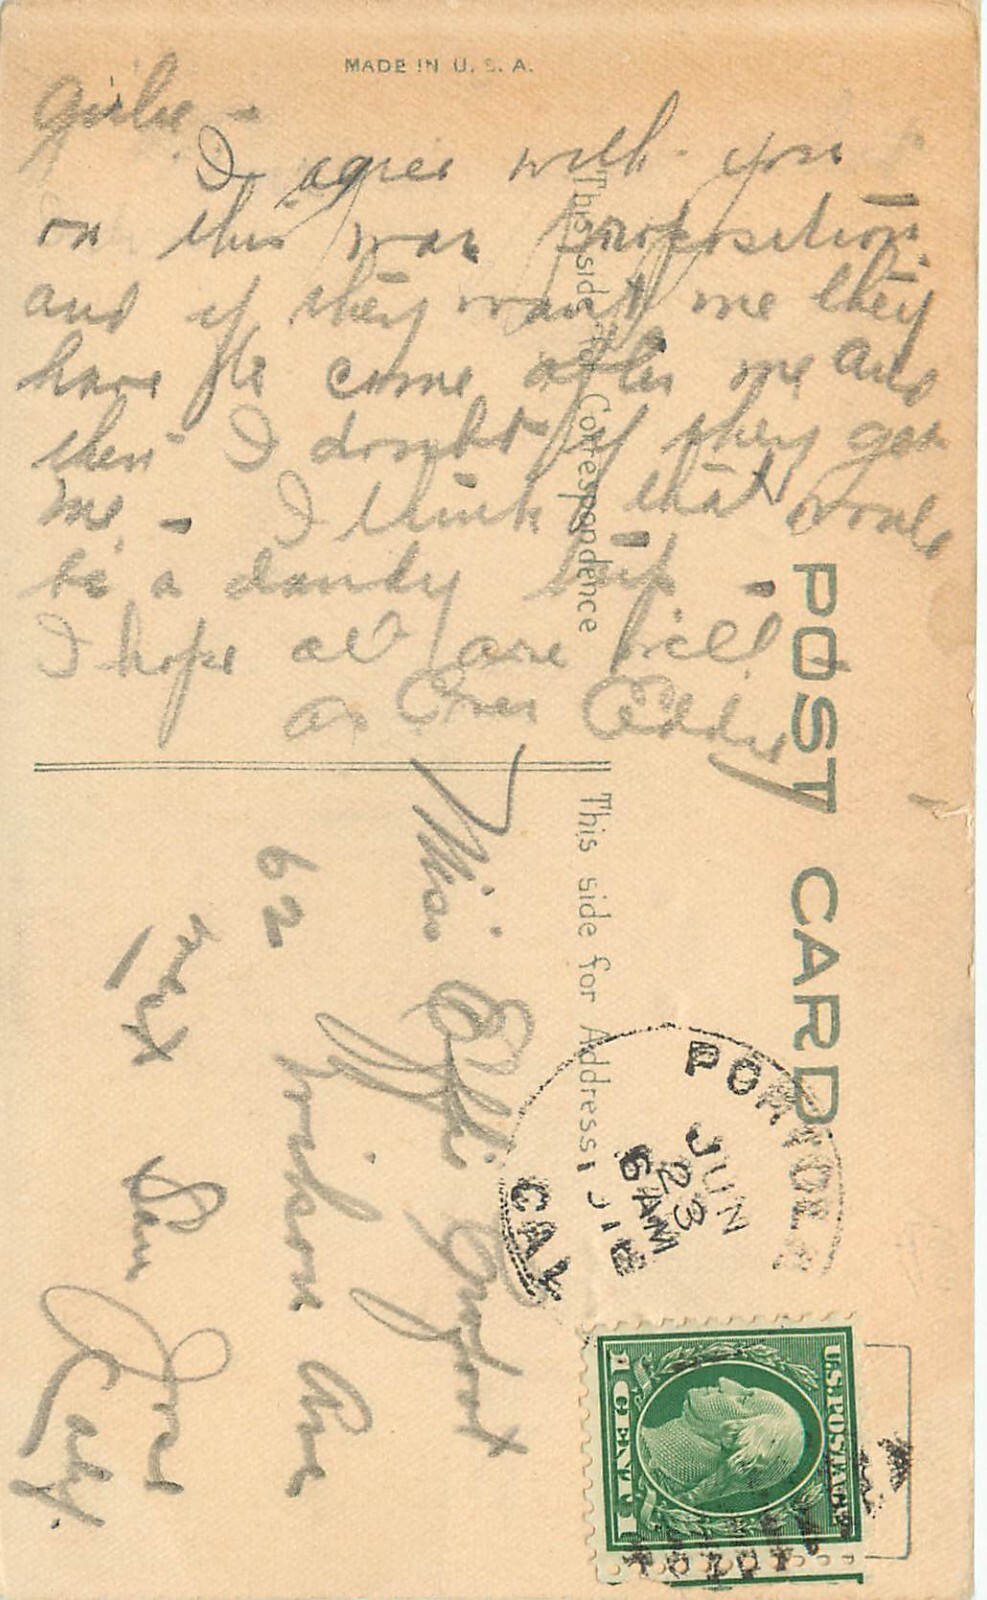 MADE IN U.S.A.
Girlie -
I agree with you
on this war proposition
and if they want me they
have to come after me and
then I doubt if they get
me - I think that would
be a dandy trip -
I hope all are well
as Ever Eddy
This side for Correspondence
POST CARD
This side for Address
Miss Effie
62
Ave
San Jose
Calif.
PORTOLA
JUN
23
6 AM
CAL
U.S. POSTAGE
1 CENT 1